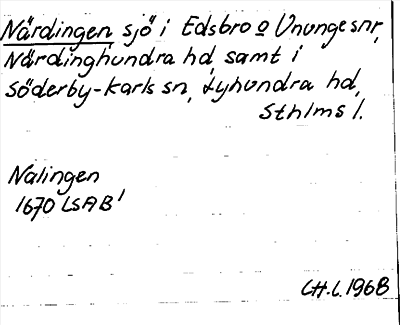 Närdingen sjö i Edsbro o Ununge snr,
Närdinghundra hd samt i
Söderby-Karls sn, Lyhundra hd,
Sthlms l.
Nalingen
1670 LSAB'
CH.L. 1968